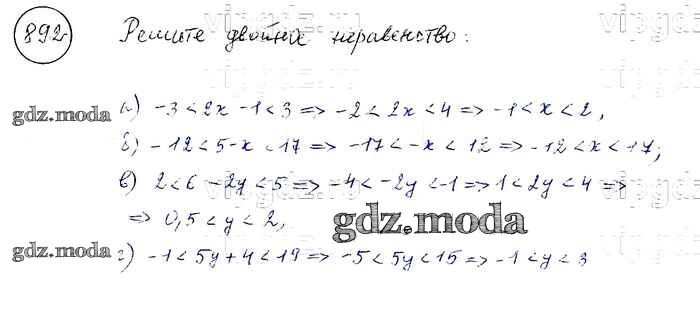 892 Решите двойное неравенство:
а) -3 < 2x - 1 < 3 => -2 < 2x < 4 => -1 < x < 2,
gdz.moda
б) -12 < 5 - x < 17 => -17 < -x < 12 => -12 < x < 17;
в) 2 < 6 - 2y < 5 => -4 < -2y < -1 => 1 < 2y < 4 =>
=> 0,5 < y < 2,
gdz.moda
gdz.moda
г) -1 < 5y + 4 < 19 => -5 < 5y < 15 => -1 < y < 3